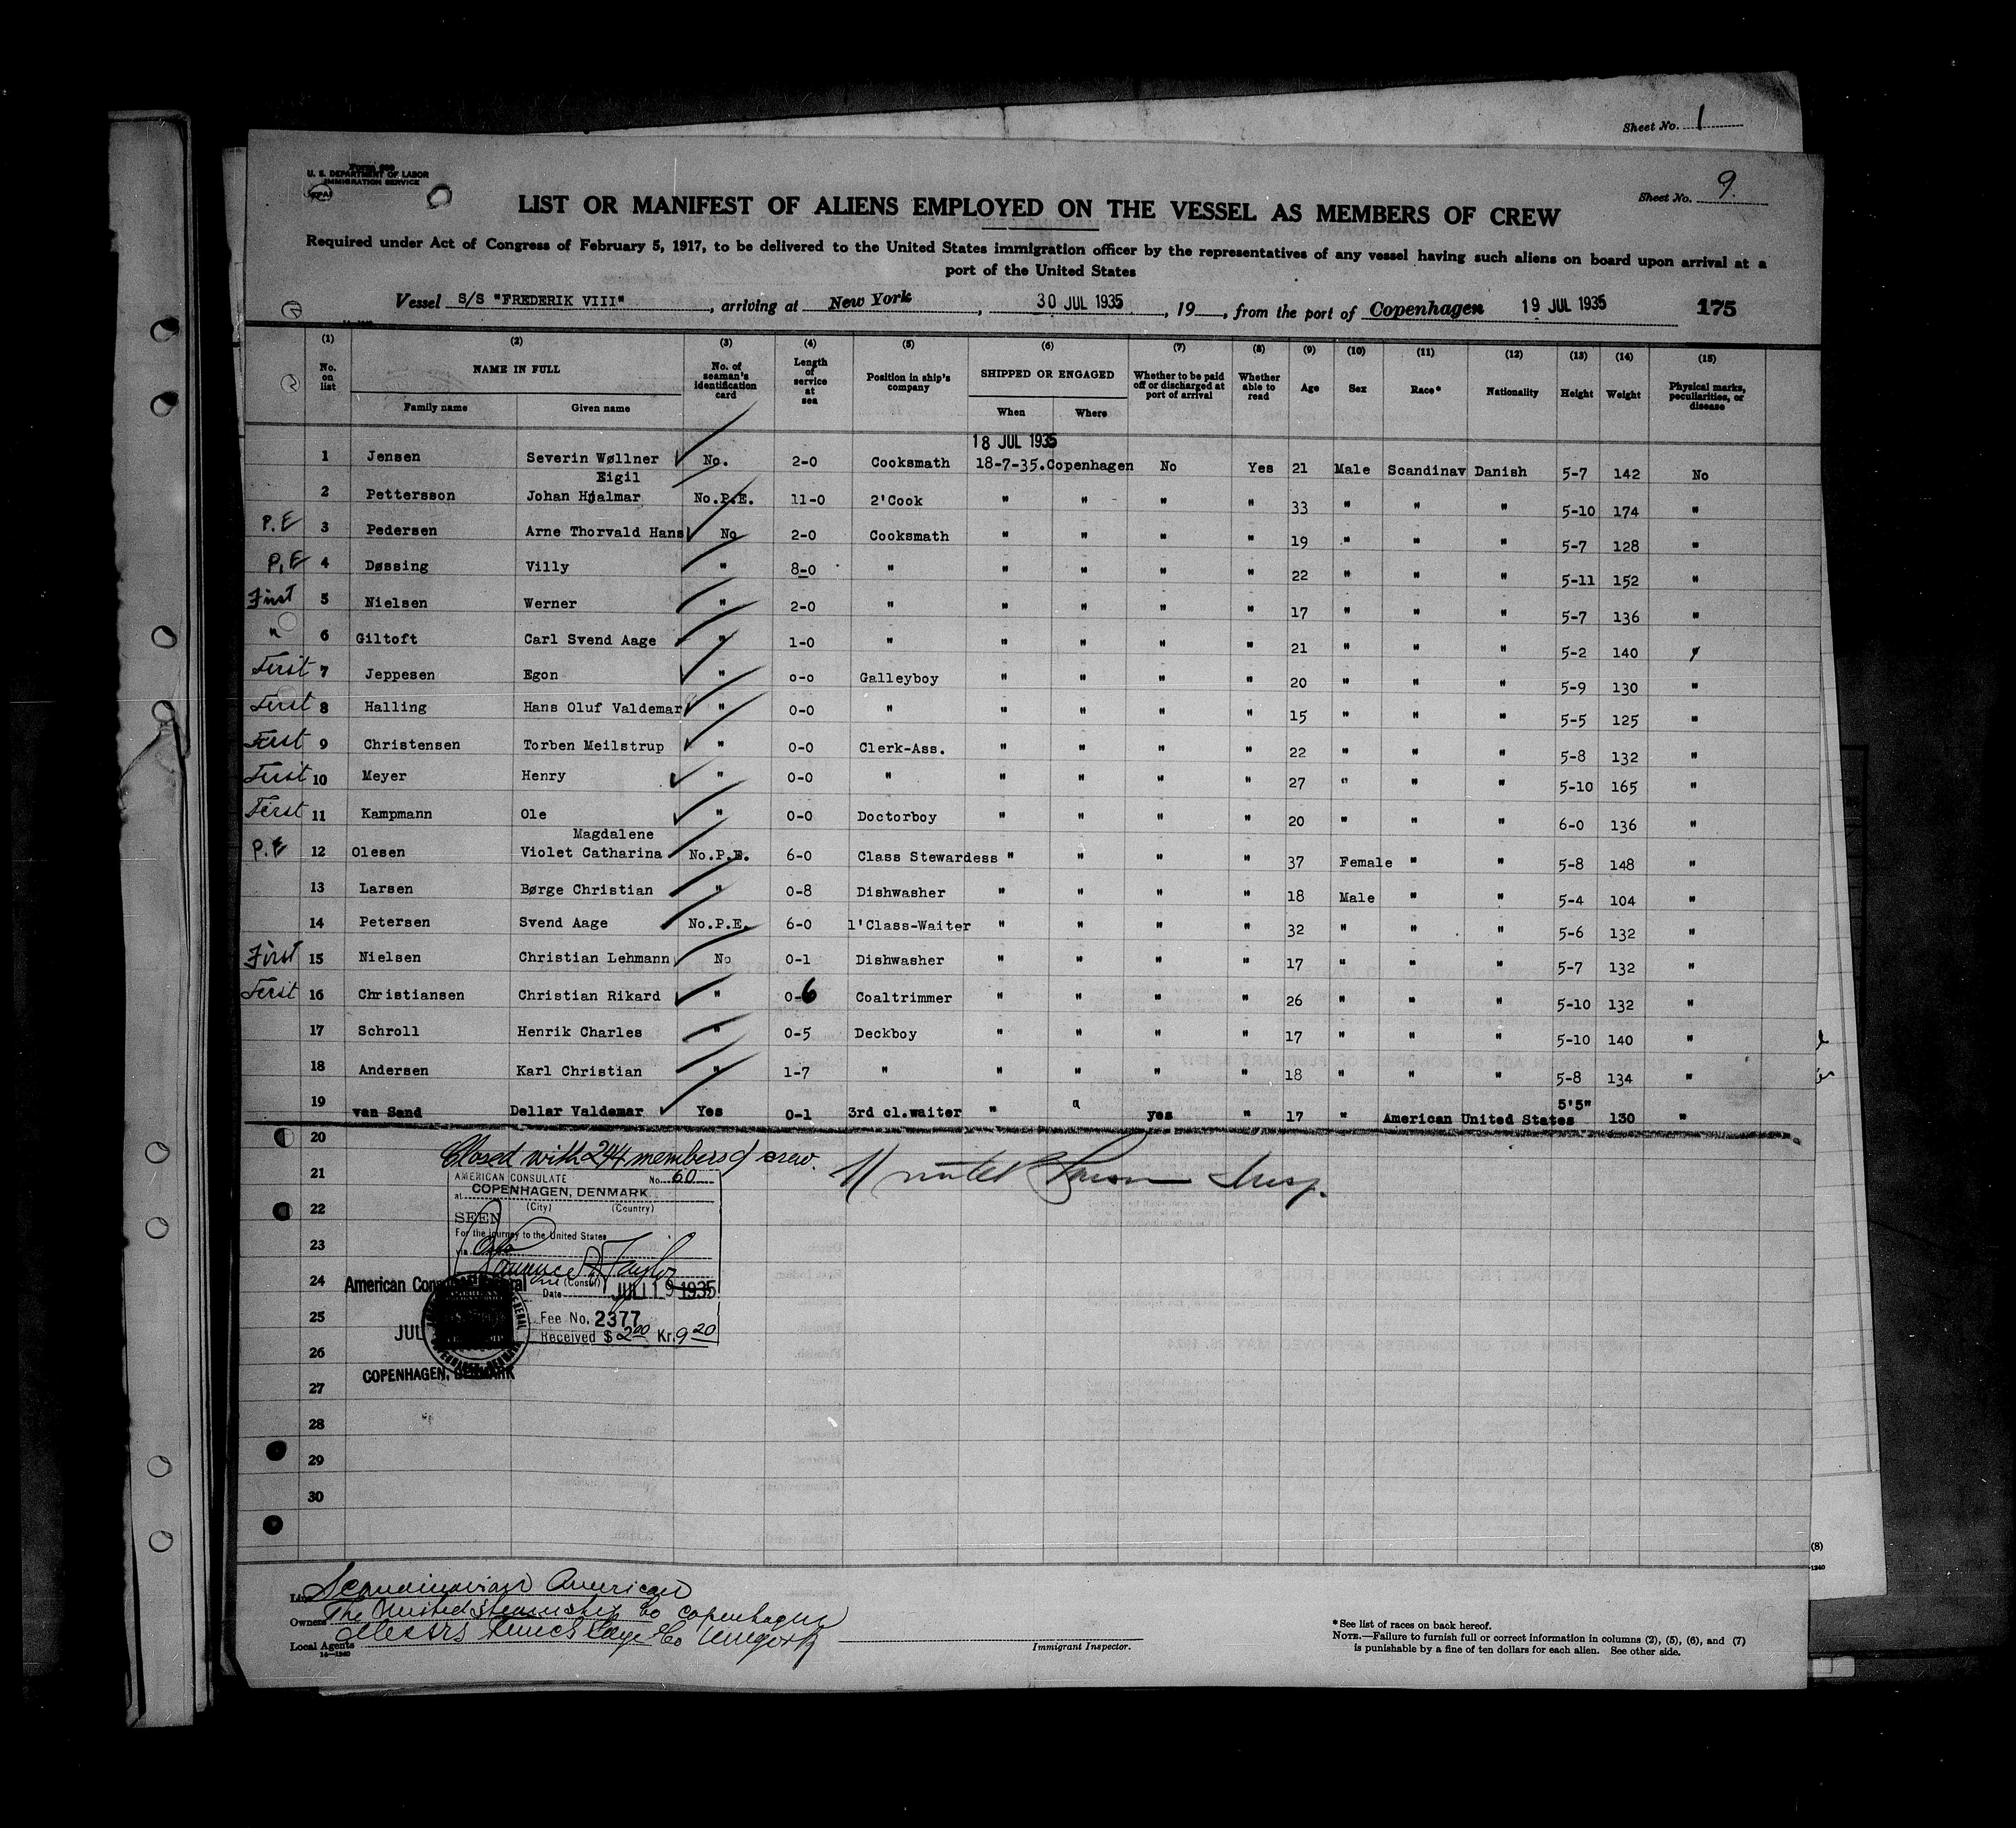 Sheet No. 1
Form 680
U. S. DEPARTMENT OF LABOR
IMMIGRATION SERVICE
Sheet No. 9.
LIST OR MANIFEST OF ALIENS EMPLOYED ON THE VESSEL AS MEMBERS OF CREW
Required under Act of Congress of February 5, 1917, to be delivered to the United States immigration officer by the representatives of any vessel having such aliens on board upon arrival at a
port of the United States
Vessel S/S "FREDERIK VIII", arriving at New York, 30 JUL 1935, 19, from the port of Copenhagen 19 JUL 1935 175
(1) (2) (3) (4) (5) (6) (7) (8) (9) (10) (11) (12) (13) (14) (15)
No. on list NAME IN FULL No. of seaman's identification card Length of service at sea Position in ship's company SHIPPED OR ENGAGED Whether to be paid off or discharged at port of arrival Whether able to read Age Sex Race* Nationality Height Weight Physical marks, peculiarities, or disease
Family name Given name When Where
18 JUL 1935
1 Jensen Severin Wøllner No. 2-0 Cooksmath 18-7-35. Copenhagen No Yes 21 Male Scandinav Danish 5-7 142 No
Eigil
2 Pettersson Johan Hjalmar No.P.E. 11-0 2'Cook " " " " 33 " " " 5-10 174 "
P.E 3 Pedersen Arne Thorvald Hans No 2-0 Cooksmath " " " " 19 " " " 5-7 128 "
P.E 4 Døssing Villy " 8-0 " " " " " 22 " " " 5-11 152 "
First 5 Nielsen Werner " 2-0 " " " " " 17 " " " 5-7 136 "
" 6 Giltoft Carl Svend Aage " 1-0 " " " " " 21 " " " 5-2 140 "
First 7 Jeppesen Egon " 0-0 Galleyboy " " " " 20 " " " 5-9 130 "
First 8 Halling Hans Oluf Valdemar " 0-0 " " " " " 15 " " " 5-5 125 "
First 9 Christensen Torben Meilstrup " 0-0 Clerk-Ass. " " " " 22 " " " 5-8 132 "
First 10 Meyer Henry " 0-0 " " " " " 27 " " " 5-10 165 "
First 11 Kampmann Ole " 0-0 Doctorboy " " " " 20 " " " 6-0 136 "
Magdalene
P.E 12 Olesen Violet Catharina No.P.E. 6-0 Class Stewardess " " " " 37 Female " " 5-8 148 "
13 Larsen Børge Christian " 0-8 Dishwasher " " " " 18 Male " " 5-4 104 "
14 Petersen Svend Aage No.P.E. 6-0 1'Class-Waiter " " " " 32 " " " 5-6 132 "
First 15 Nielsen Christian Lehmann No 0-1 Dishwasher " " " " 17 " " " 5-7 132 "
First 16 Christiansen Christian Rikard " 0-6 Coaltrimmer " " " " 26 " " " 5-10 132 "
17 Schroll Henrik Charles " 0-5 Deckboy " " " " 17 " " " 5-10 140 "
18 Andersen Karl Christian " 1-7 " " " " " 18 " " " 5-8 134 "
19 van Sand Dellar Valdemar Yes 0-1 3rd cl.waiter " " yes " 17 " American United States 5'5" 130 "
20
Closed with 244 members of crew.
21
AMERICAN CONSULATE No. 60
at COPENHAGEN, DENMARK
(City) (Country)
22
SEEN
For the journey to the United States
23
via Oslo
Taylor
24
American Consulate General
(Consul)
Date JUL 19 1935
25
Fee No. 2377
JUL
Received $ 2.00 Kr. 9.20
26
COPENHAGEN, DENMARK
27
28
29
30
(8)
Line Scandinavian American
Owners The United Steamship Co Copenhagen
Local Agents Messrs
14-1240
Immigrant Inspector.
* See list of races on back hereof.
NOTE.—Failure to furnish full or correct information in columns (2), (5), (6), and (7)
is punishable by a fine of ten dollars for each alien. See other side.